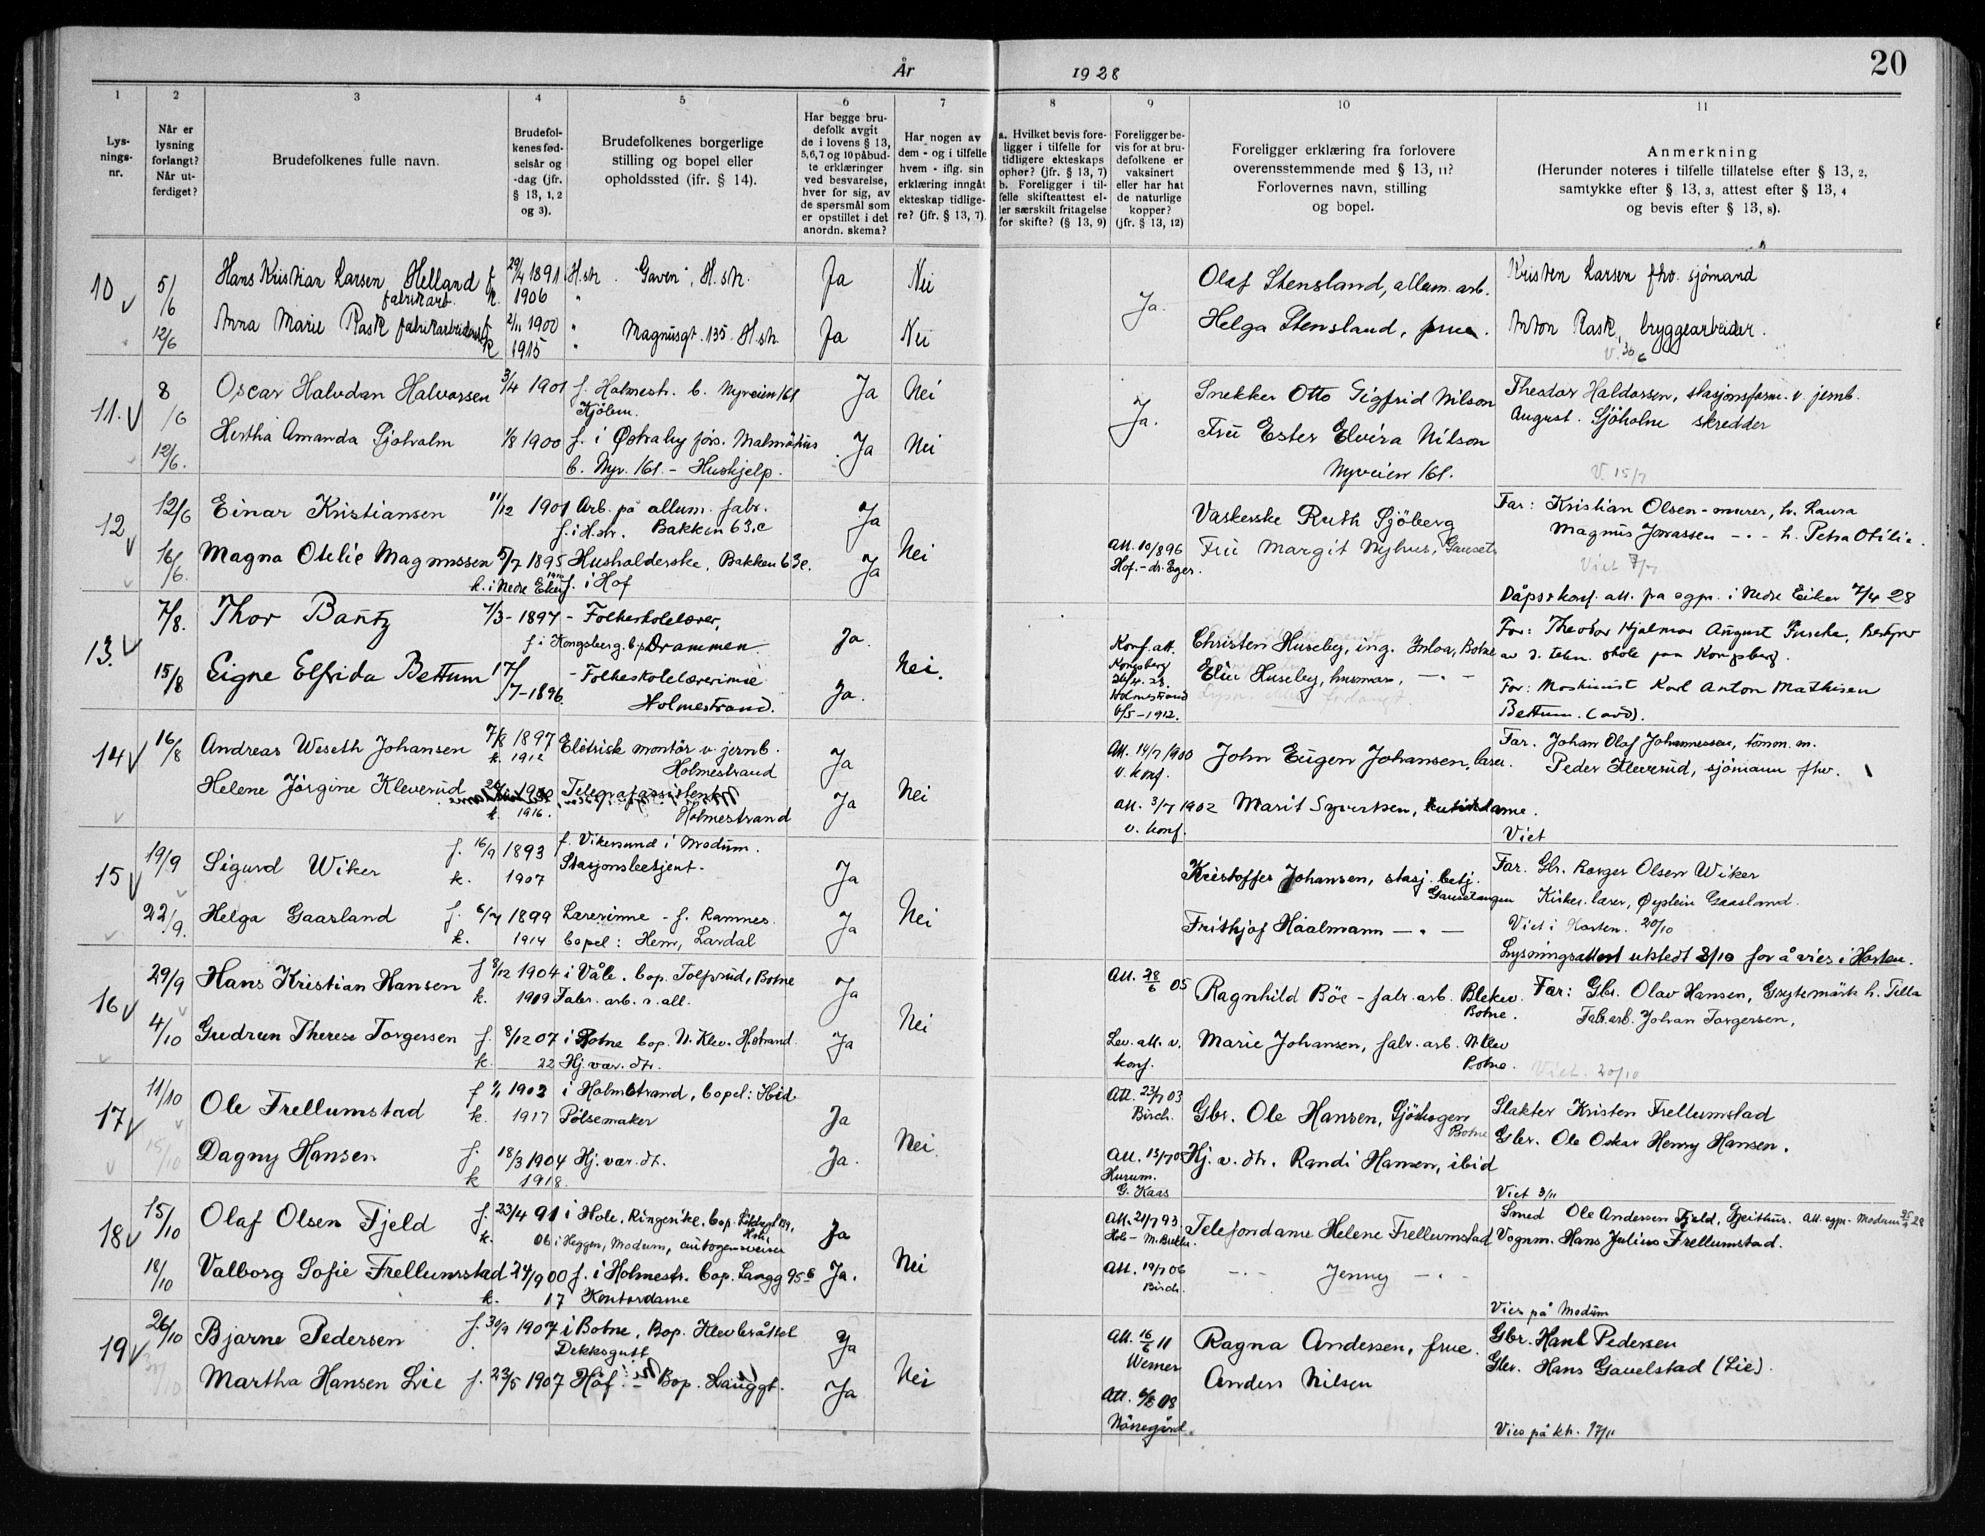 År 1928
20
1 2 3 4 5 6 7 8 9 10 11
Lysnings-nr.
Når er lysning forlangt? Når utferdiget?
Brudefolkenes fulle navn.
Brudefolkenes fødselsår og -dag (jfr. § 13, 1, 2 og 3).
Brudefolkenes borgerlige stilling og bopel eller opholdssted (jfr. § 14).
Har begge brudefolk avgit de i lovens § 13, 5, 6, 7 og 10 påbudte erklæringer ved besvarelse, hver for sig, av de spørsmål som er opstillet i det anordn. skema?
Har nogen av dem - og i tilfelle hvem - iflg. sin erklæring inngåt ekteskap tidligere? (jfr. § 13, 7).
a. Hvilket bevis foreligger i tilfelle for tidligere ekteskaps ophør? (jfr. § 13, 7) b. Foreligger i tilfelle skifteattest eller særskilt fritagelse for skifte? (§ 13, 9)
Foreligger bevis for at brudefolkene er vaksinert eller har hat de naturlige kopper? (jfr. § 13, 12)
Foreligger erklæring fra forlovere overensstemmende med § 13, 11? Forlovernes navn, stilling og bopel.
Anmerkning (Herunder noteres i tilfelle tillatelse efter § 13, 2, samtykke efter § 13, 3, attest efter § 13, 4 og bevis efter § 13, 8).
10 5/6 Hans Kristian Larsen Helland f. 29/4 1891 H.str. "Gaven", H.str. Ja Nei Ja. Olaf Stensland, allum. arb. Kristen Larsen fhv. sjömand
fabrikarb. k. 1906
12/6 Anna Marie Rask fabrikarbeiderske f. 2/11 1900 " Magnusgt. 135. H.str. Ja Nei Helga Stensland, frue. Anton Rask, bryggearbeider.
k 1915 "
V. 30/6
11. 8/6 Oscar Halvdan Halvorsen 3/4 1901 f. Holmestr. b. Nyveien 161 Ja Nei Ja. Snekker Otto Sigfrid Nilson Theodor Haldorsen, stasjonsform. v. jernb.
12/6. Hertha Amanda Sjöholm 1/8 1900 f. i Østraby förs. Malmöhus Ja Nei Fru Ester Elvira Nilson August Sjöholm skredder
b. Nyv. 161. - Hushjelp. Nyveien 161. V. 15/7
12 12/6 Einar Kristiansen 11/12 1901 Arb. på allum. fabr. Ja Vaskerske Ruth Sjöberg Far: Kristian Olsen - murer, h. Laura
f. i H.str. Bakken 63.c
16/6. Magna Otilie Magnussen 5/7 1895 Husholderske, Bakken 63c. Ja Nei Att. 10/8 96 Fru Margit Nyhus, Magnus Joransen - " - h. Petra Otilie.
k. i Nedre Eker f. i Hof Hof. - dr. Eger. Viet 7/7
Dåps & konf. att. fra sgpr. i Nedre Eiker 7/4 28
13. 7/8. Thor Bantz 7/3 - 1897 - Folkeskolelærer, Ja. Konf. att. Kongsberg Christen Huseby, ing. Botne Far: Theodor Hjalmar August Bestyrer
f i Kongsberg. bp. Drammen av d. tekn. skole paa Kongsberg.
15/8 Signe Elfrida Bettum 17/7 - 1896. - Folkeskolelærerinne Holmestrand. Ja. Nei. Holmestrand 6/5 - 1912. Elin Huseby, husmor, - " - Far: Maskinist Karl Anton Mathisen
Bettum. (død).
14 16/8 Andreas Weseth Johansen 7/8 1897 Elektrisk montör v. jernb. Ja Att. 14/7 1900 John Eugen Johansen, lærer. Far. Johan Olaf Johannessen, tömm. m.
k. 1912 Holmestrand v. konf. Peder Kleverud, sjömann fhv.
Helene Jörgine Kleverud Telegrafassistent Ja Nei Att. 3/7 1902 Marit Syvertsen, butikkdame.
k. 1916. Holmestrand v. konf. Viet
15 19/9 Sigurd Wiker f. 16/9 1893 f. Vikersund i Modum. Ja Kristoffer Johansen, stasj. betj. Far. Gbr. Borger Olsen Wiker
k. 1907 Stasjonsbetjent. Gausetangen
22/9. Helga Gaasland f. 6/7 1899 Lærerinne - f. Ramnes. Ja Nei Frithjof Haalmann - " - Kirkes. lærer, Øystein Gaasland.
k. 1914 bopel: Hem, Lardal Viet i Horten. 20/10
Lysningsattest utstedt 3/10 for å vies i Horten.
16 29/9 Hans Kristian Hansen f 8/12 1904 i Våle. bop. Tolfsrud, Botne Ja Att. 28/6 05 Ragnhild Böe - fabr. arb. Blekev. Botne. Far: Gbr. Olav Hansen,
k. 1909 Fabr. arb. v. all.
4/10 Gudrun Therese Torgersen f. 8/12 07 i Botne bop. N. Klev. H.strand Ja Nei Lev. att. v. konf. Marie Johansen, fabr. arb. N. Klev Botne. Fabr. arb. Johan Torgersen,
k. 22 Hj. vær. dtr. Viet. 20/10
17 11/10 Ole Frellumstad f 1/1 1902 i Holmestrand, bopel: Ibid Ja Att. 23/7 03 Birch. Gbr. Ole Hansen, Sjöskogen Botne Slakter Kristen Frellumstad
k. 1917 Pölsemaker
15/10 Dagny Hansen f. 18/3 1904 Hj. vær. dtr. Ja. Nei. Att. 13/7 05 Hurum. G. Kaas Hj. v. dtr. Randi Hansen, ibid Gbr. Ole Oskar Henry Hansen.
k 1918. Viet 3/11
18 15/10 Olaf Olsen Fjeld f. 23/4 91 i Hole, Ringerike. bop. Ja Att. 21/7 93 Telefondame Helene Frellumstad Smed Ole Andersen Fjeld, Geithus. Att. sgpr. Modum 25/9 28
k. 06 i Heggen, Modum, autogensveiser
18/10 Valborg Sofie Frellumstad 24/9 00 f. i Holmestr. bop. Langg 95-b Ja. Nei Att. 19/7 06 Birch. - " - Jenny - " - Vognm. Hans Julius Frellumstad.
k. 17 Kontordame
Vies på Modum
19 26/10 Bjarne Pedersen f. 30/9 1907 i Botne, Bop. Klevbråttet Ja Att. 16/6 11 Werner Ragna Andersen, frue. Gbr. Hans Pedersen
Dekksgutt
Martha Hansen Lie f. 23/5 1907 Hof. - Bop. Langgt. Ja Nei Att. 6/6 08 Anders Nilsen Gbr. Hans Gavelstad (Lie).
Vies på kh. 17/11